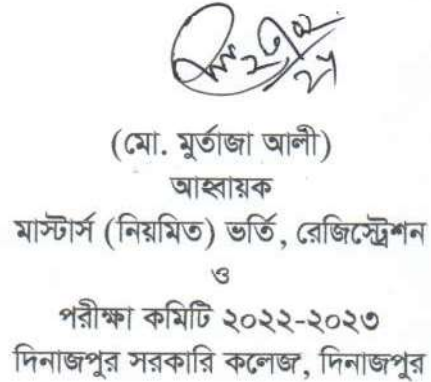 (মো. মুর্তাজা আলী)
আহ্বায়ক
মাস্টার্স (নিয়মিত) ভর্তি, রেজিস্ট্রেশন
ও
পরীক্ষা কমিটি ২০২২-২০২৩
দিনাজপুর সরকারি কলেজ, দিনাজপুর